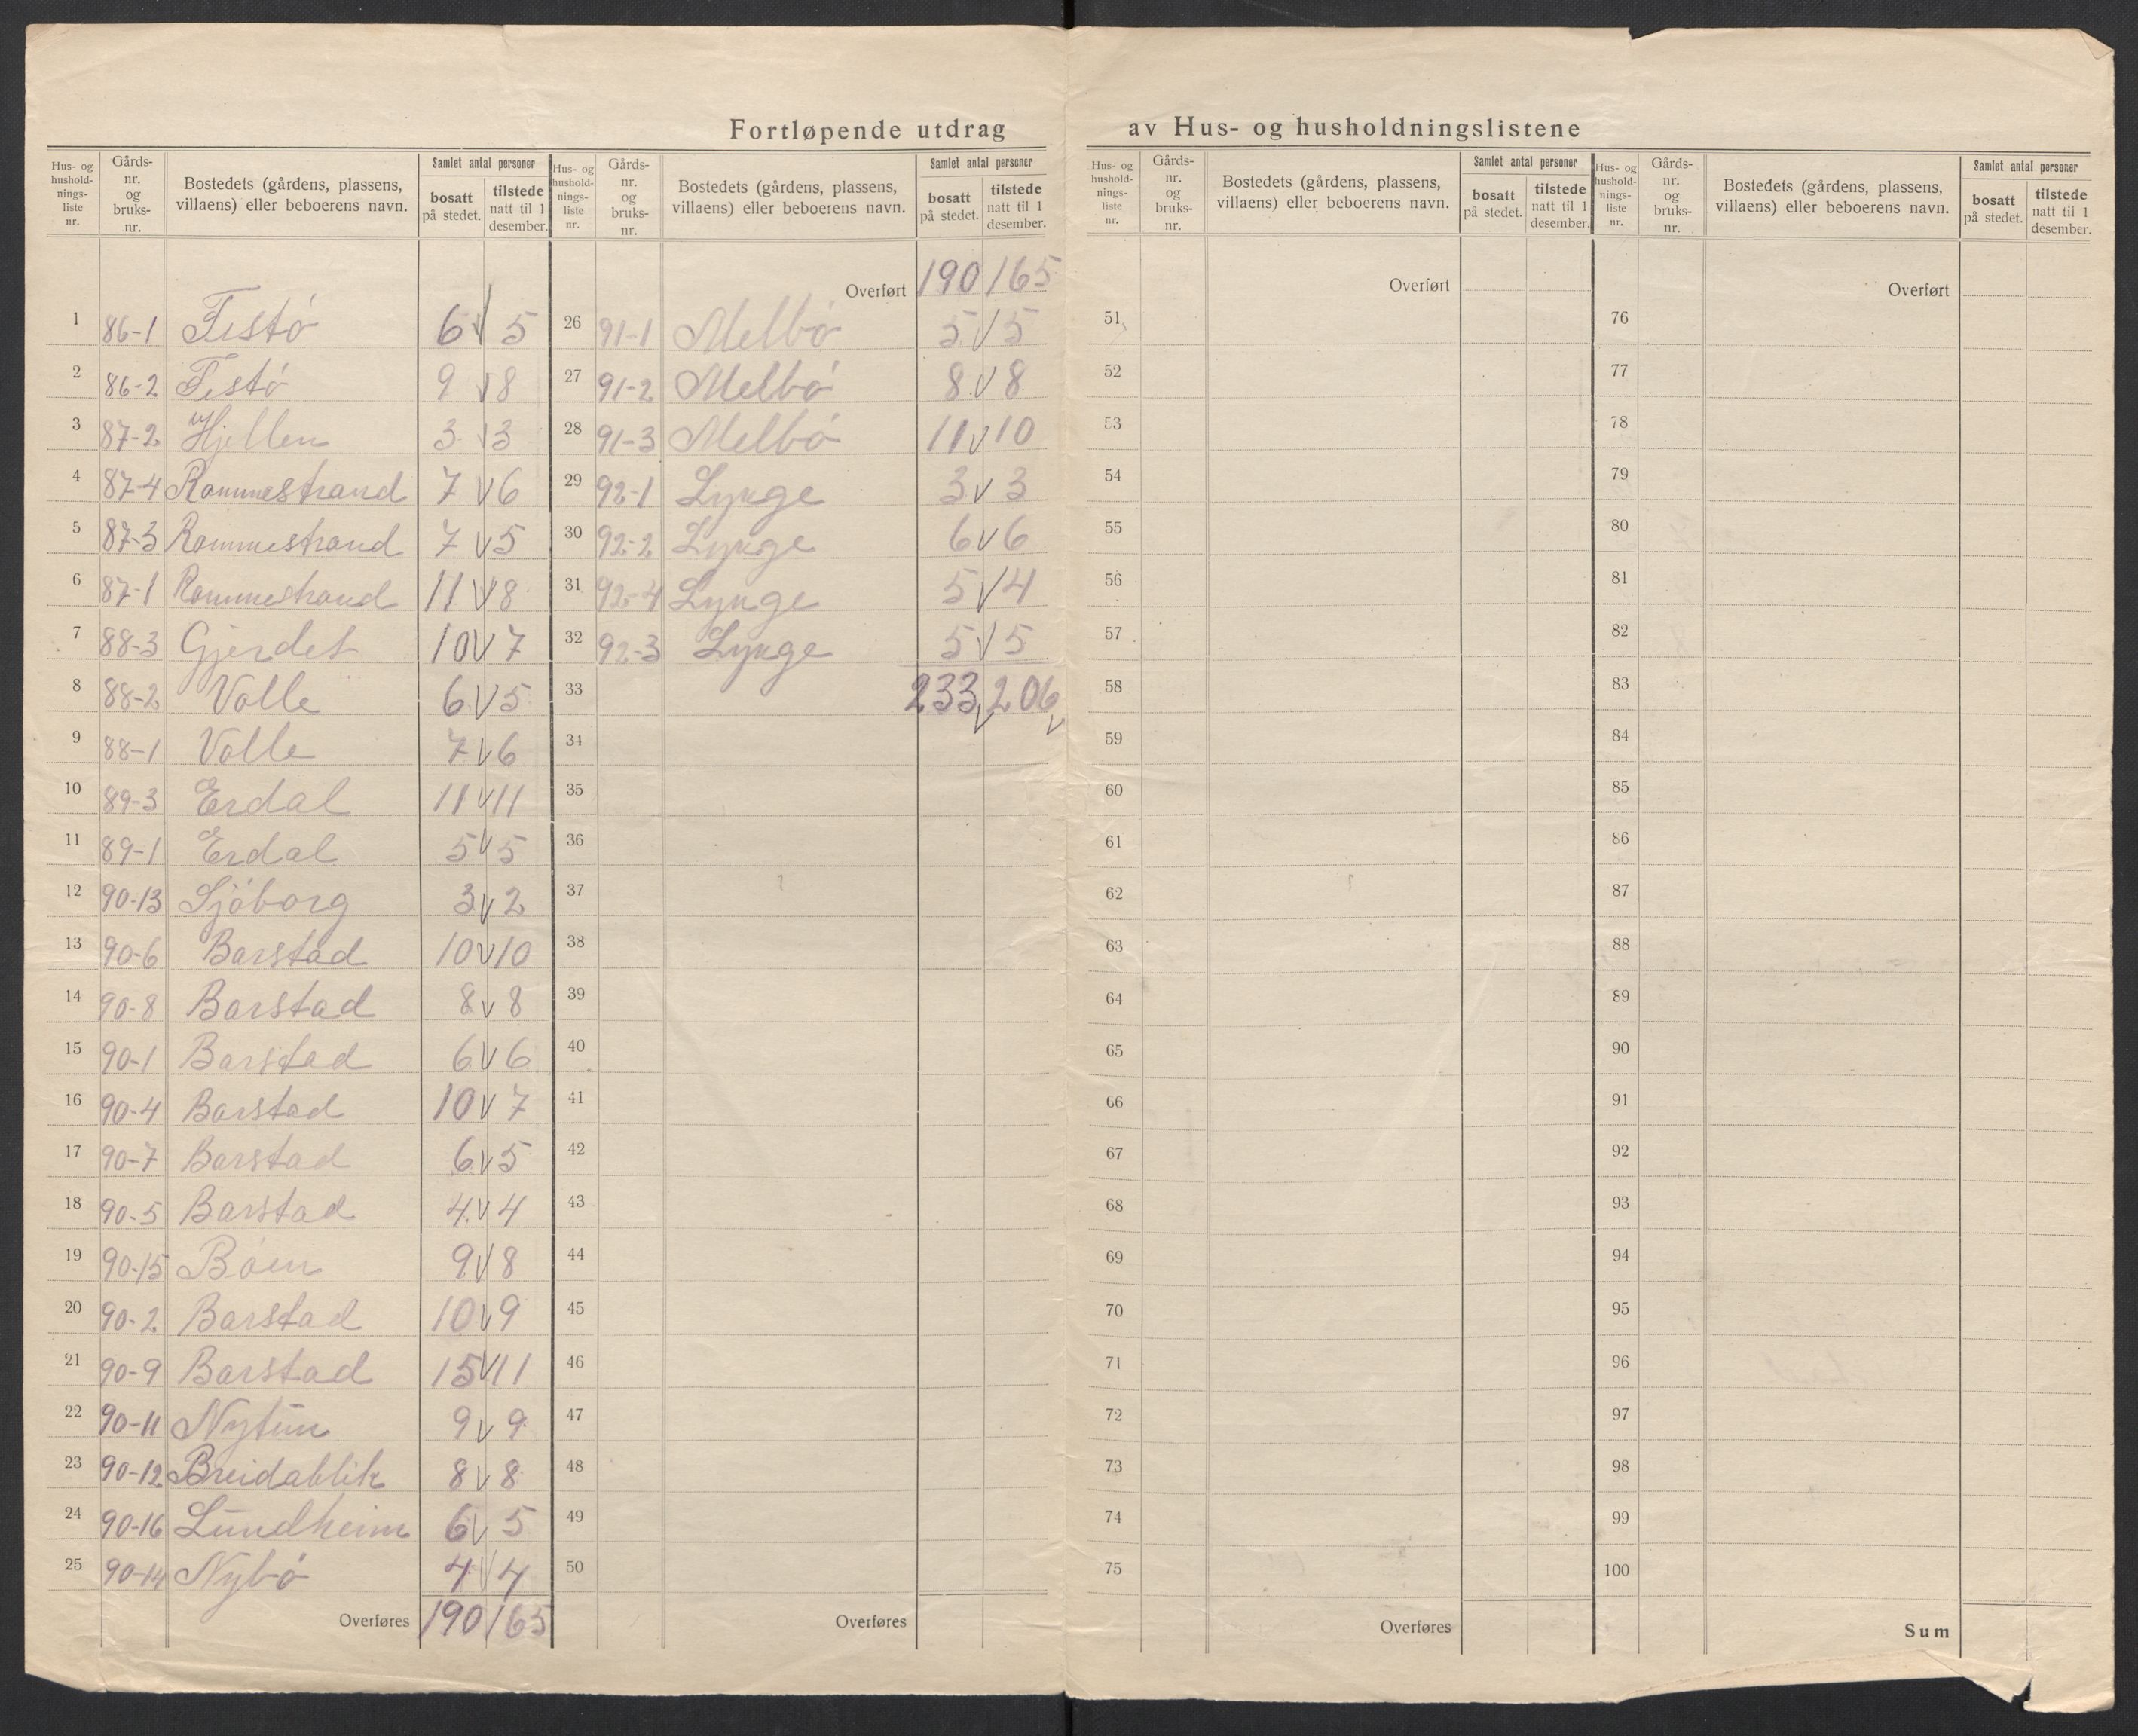 Fortløpende utdrag av Hus- og husholdningslistene
Hus- og husholdnings-liste nr. Gårds-nr. og bruks-nr. Bostedets (gårdens, plassens, villaens) eller beboerens navn. Samlet antal personer bosatt på stedet. tilstede natt til 1 desember.
1 86-1 Festö 6 v 5
2 86-2 Festö 9 v 8
3 87-2 Hjellen 3 v 3
4 87-4 Rommestrand 7 v 6
5 87-3 Rommestrand 7 v 5
6 87-1 Rommestrand 11 v 8
7 88-3 Gjerdet 10 v 7
8 88-2 Volle 6 v 5
9 88-1 Volle 7 v 6
10 89-3 Erdal 11 v 11
11 89-1 Erdal 5 v 5
12 90-13 Sjöborg 3 v 2
13 90-6 Barstad 10 v 10
14 90-8 Barstad 8 v 8
15 90-1 Barstad 6 v 6
16 90-4 Barstad 10 v 7
17 90-7 Barstad 6 v 5
18 90-5 Barstad 4 v 4
19 90-15 Böen 9 v 8
20 90-2 Barstad 10 v 9
21 90-9 Barstad 15 v 11
22 90-11 Nytun 9 v 9
23 90-12 Breidablik 8 v 8
24 90-16 Lundheim 6 v 5
25 90-14 Nybö 4 v 4
Overføres 190 165
Hus- og husholdnings-liste nr. Gårds-nr. og bruks-nr. Bostedets (gårdens, plassens, villaens) eller beboerens navn. Samlet antal personer bosatt på stedet. tilstede natt til 1 desember.
Overført 190 165
26 91-1 Melbö 5 v 5
27 91-2 Melbö 8 v 8
28 91-3 Melbö 11 v 10
29 92-1 Lynge 3 v 3
30 92-2 Lynge 6 v 6
31 92-4 Lynge 5 v 4
32 92-3 Lynge 5 v 5
33 233 v 206 v
34
35
36
37
38
39
40
41
42
43
44
45
46
47
48
49
50
Overføres
Hus- og husholdnings-liste nr. Gårds-nr. og bruks-nr. Bostedets (gårdens, plassens, villaens) eller beboerens navn. Samlet antal personer bosatt på stedet. tilstede natt til 1 desember.
Overført
51
52
53
54
55
56
57
58
59
60
61
62
63
64
65
66
67
68
69
70
71
72
73
74
75
Overføres
Hus- og husholdnings-liste nr. Gårds-nr. og bruks-nr. Bostedets (gårdens, plassens, villaens) eller beboerens navn. Samlet antal personer bosatt på stedet. tilstede natt til 1 desember.
Overført
76
77
78
79
80
81
82
83
84
85
86
87
88
89
90
91
92
93
94
95
96
97
98
99
100
Sum